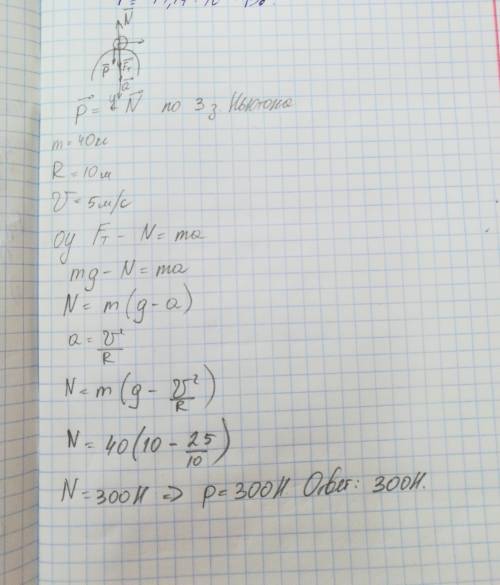 N
P Fт
a
y
P = N по 3 з Ньютона
m = 40м
R = 10м
V = 5 м/с
oy Fт - N = ma
mg - N = ma
N = m(g - a)
a = V²/R
N = m(g - V²/R)
N = 40(10 - 25/10)
N = 300Н => p = 300Н Ответ: 300Н.